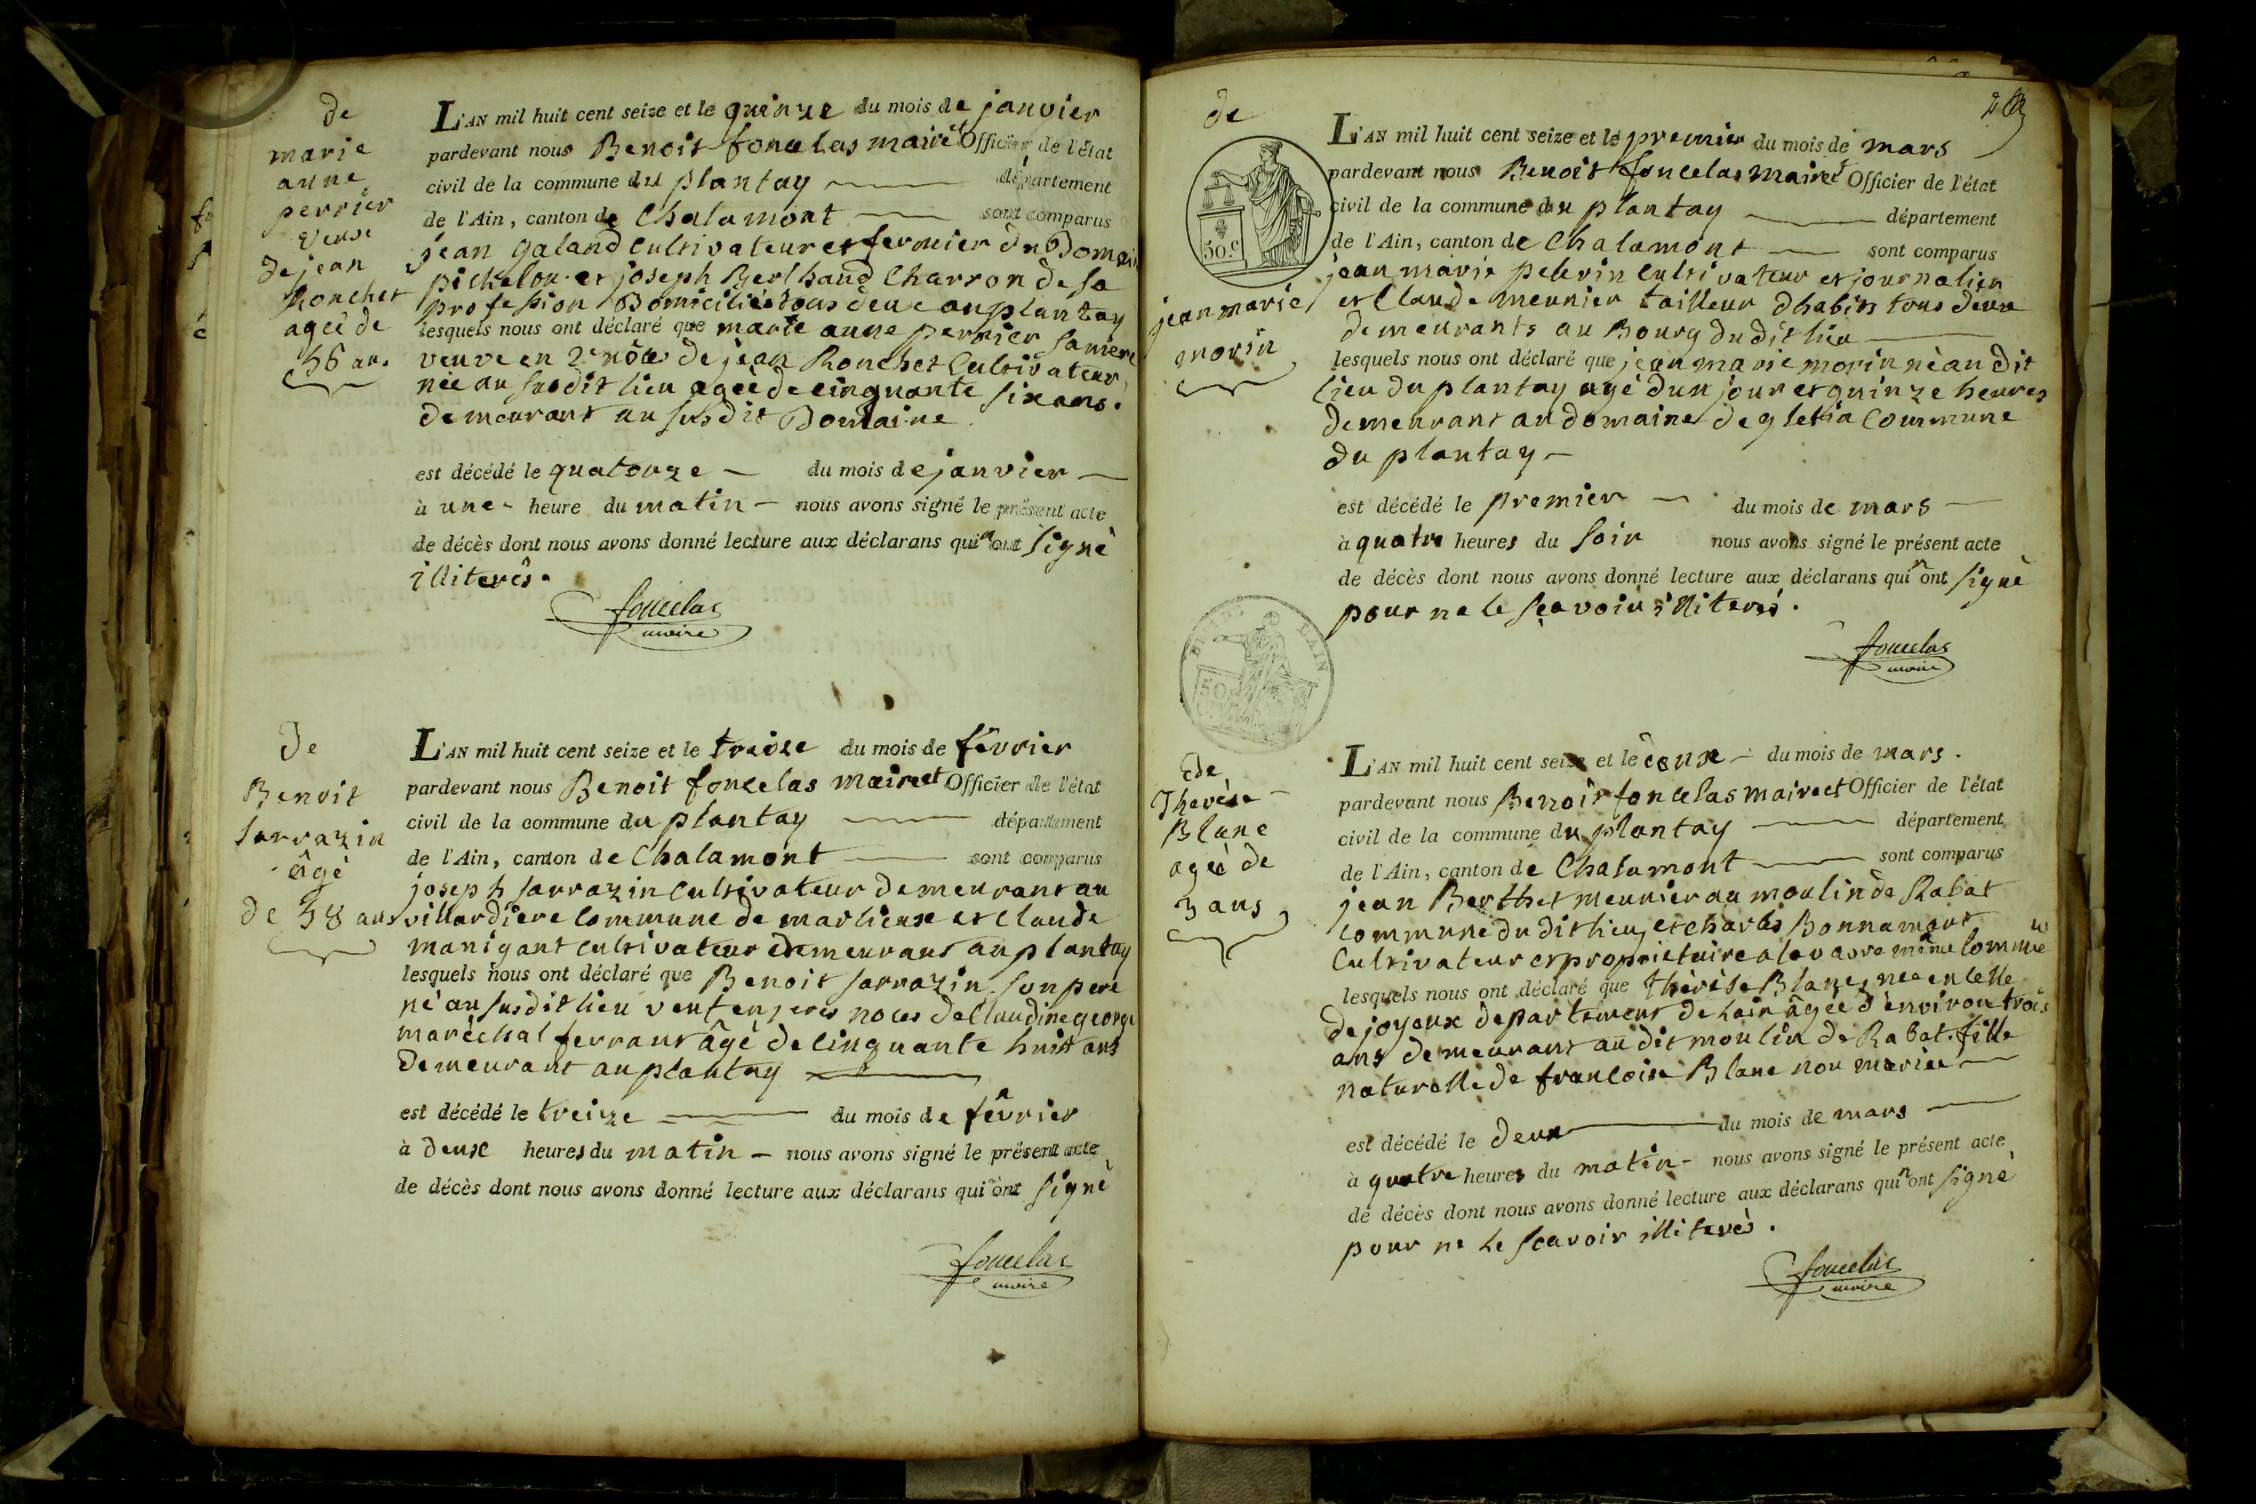 de
marie
anne
perrier
veuve
de jean
Ronchet
ageé de
56 ans
L'AN mil huit cent seize et le quinze du mois de janvier
pardevant nous Benoit foncelas maire et Officier de l'état
civil de la commune du plantay département
de l'Ain, canton de Chalamont sont comparus
jean galand Cultivateur et fermier du Domaine
pichelou et joseph Berthaud Charron de sa
profession Domiciliés tous deux au plantay
lesquels nous ont déclaré que marie anne perrier sa mere
veuve en 2e nôces de jean Ronchet Cultivateur
neé au susdit lieu ageé de cinquante six ans.
demeurant au susdit Domaine
est décédé le quatorze du mois de janvier
à une heure du matin nous avons signé le présent acte
de décès dont nous avons donné lecture aux déclarans qui n'ont signé
illiterés.
foncelas
maire
De
Benoit
sarrazin
âgé
de 58 ans
L'AN mil huit cent seize et le treize du mois de février
pardevant nous Benoit foncelas maire et Officier de l'état
civil de la commune du plantay département
de l'Ain, canton de Chalamont sont comparus
joseph sarrazin Cultivateur demeurant au
villardiere Commune de marlieux et Claude
manigant cultivateur demeurant au plantay
lesquels nous ont déclaré que Benoit sarrazin son pere
né au susdit lieu veuf en noces de Claudine george
maréchal ferrant âgé de cinquante huit ans
Demeurant au plantay
est décédé le treize du mois de février
à deux heures du matin nous avons signé le présent acte
de décès dont nous avons donné lecture aux déclarans qui n'ont signé
foncelas
maire
de
50.c
jean marie
morin
L'AN mil huit cent seize et le premier du mois de mars
pardevant nous Benoit foncelas maire et Officier de l'état
civil de la commune du plantay département
de l'Ain, canton de Chalamont sont comparus
jean marie pelerin Cultivateur et journalier
et Claude meunier tailleur dhabits tous deux
demeurants au Bourg du dit lieu
lesquels nous ont déclaré que jean marie morin né au dit
lieu du plantay agé dun jour et quinze heures
demeurant au domaine de gletia Commune
du plantay
est décédé le premier du mois de mars
à quatre heures du soir nous avons signé le présent acte
de décès dont nous avons donné lecture aux déclarans qui n'ont signé
pour ne le sçavoir illiterés.
foncelas
maire
AIN
50
de
Therèse
Blanc
ageé de
3 ans
L'AN mil huit cent seize et le deux du mois de mars.
pardevant nous Benoit foncelas maire et Officier de l'état
civil de la commune du plantay département
de l'Ain, canton de Chalamont sont comparus
jean Berthet meunier au moulin de Rabat
commune du dit lieu, et charles Bonnamour
Cultivateur et proprietaire a la vavre même Commune
lesquels nous ont déclaré que thérèse Blanc, neé en celle
de joyeux departement de lain âgeé d'environ trois
ans demeurant au dit moulin de Rabat. fille
naturelle de francoise Blanc non marieé
est décédé le deux du mois de mars
à quatre heures du matin nous avons signé le présent acte
de décès dont nous avons donné lecture aux déclarans qui n'ont signé
pour ne le scavoir illiterés.
foncelas
maire